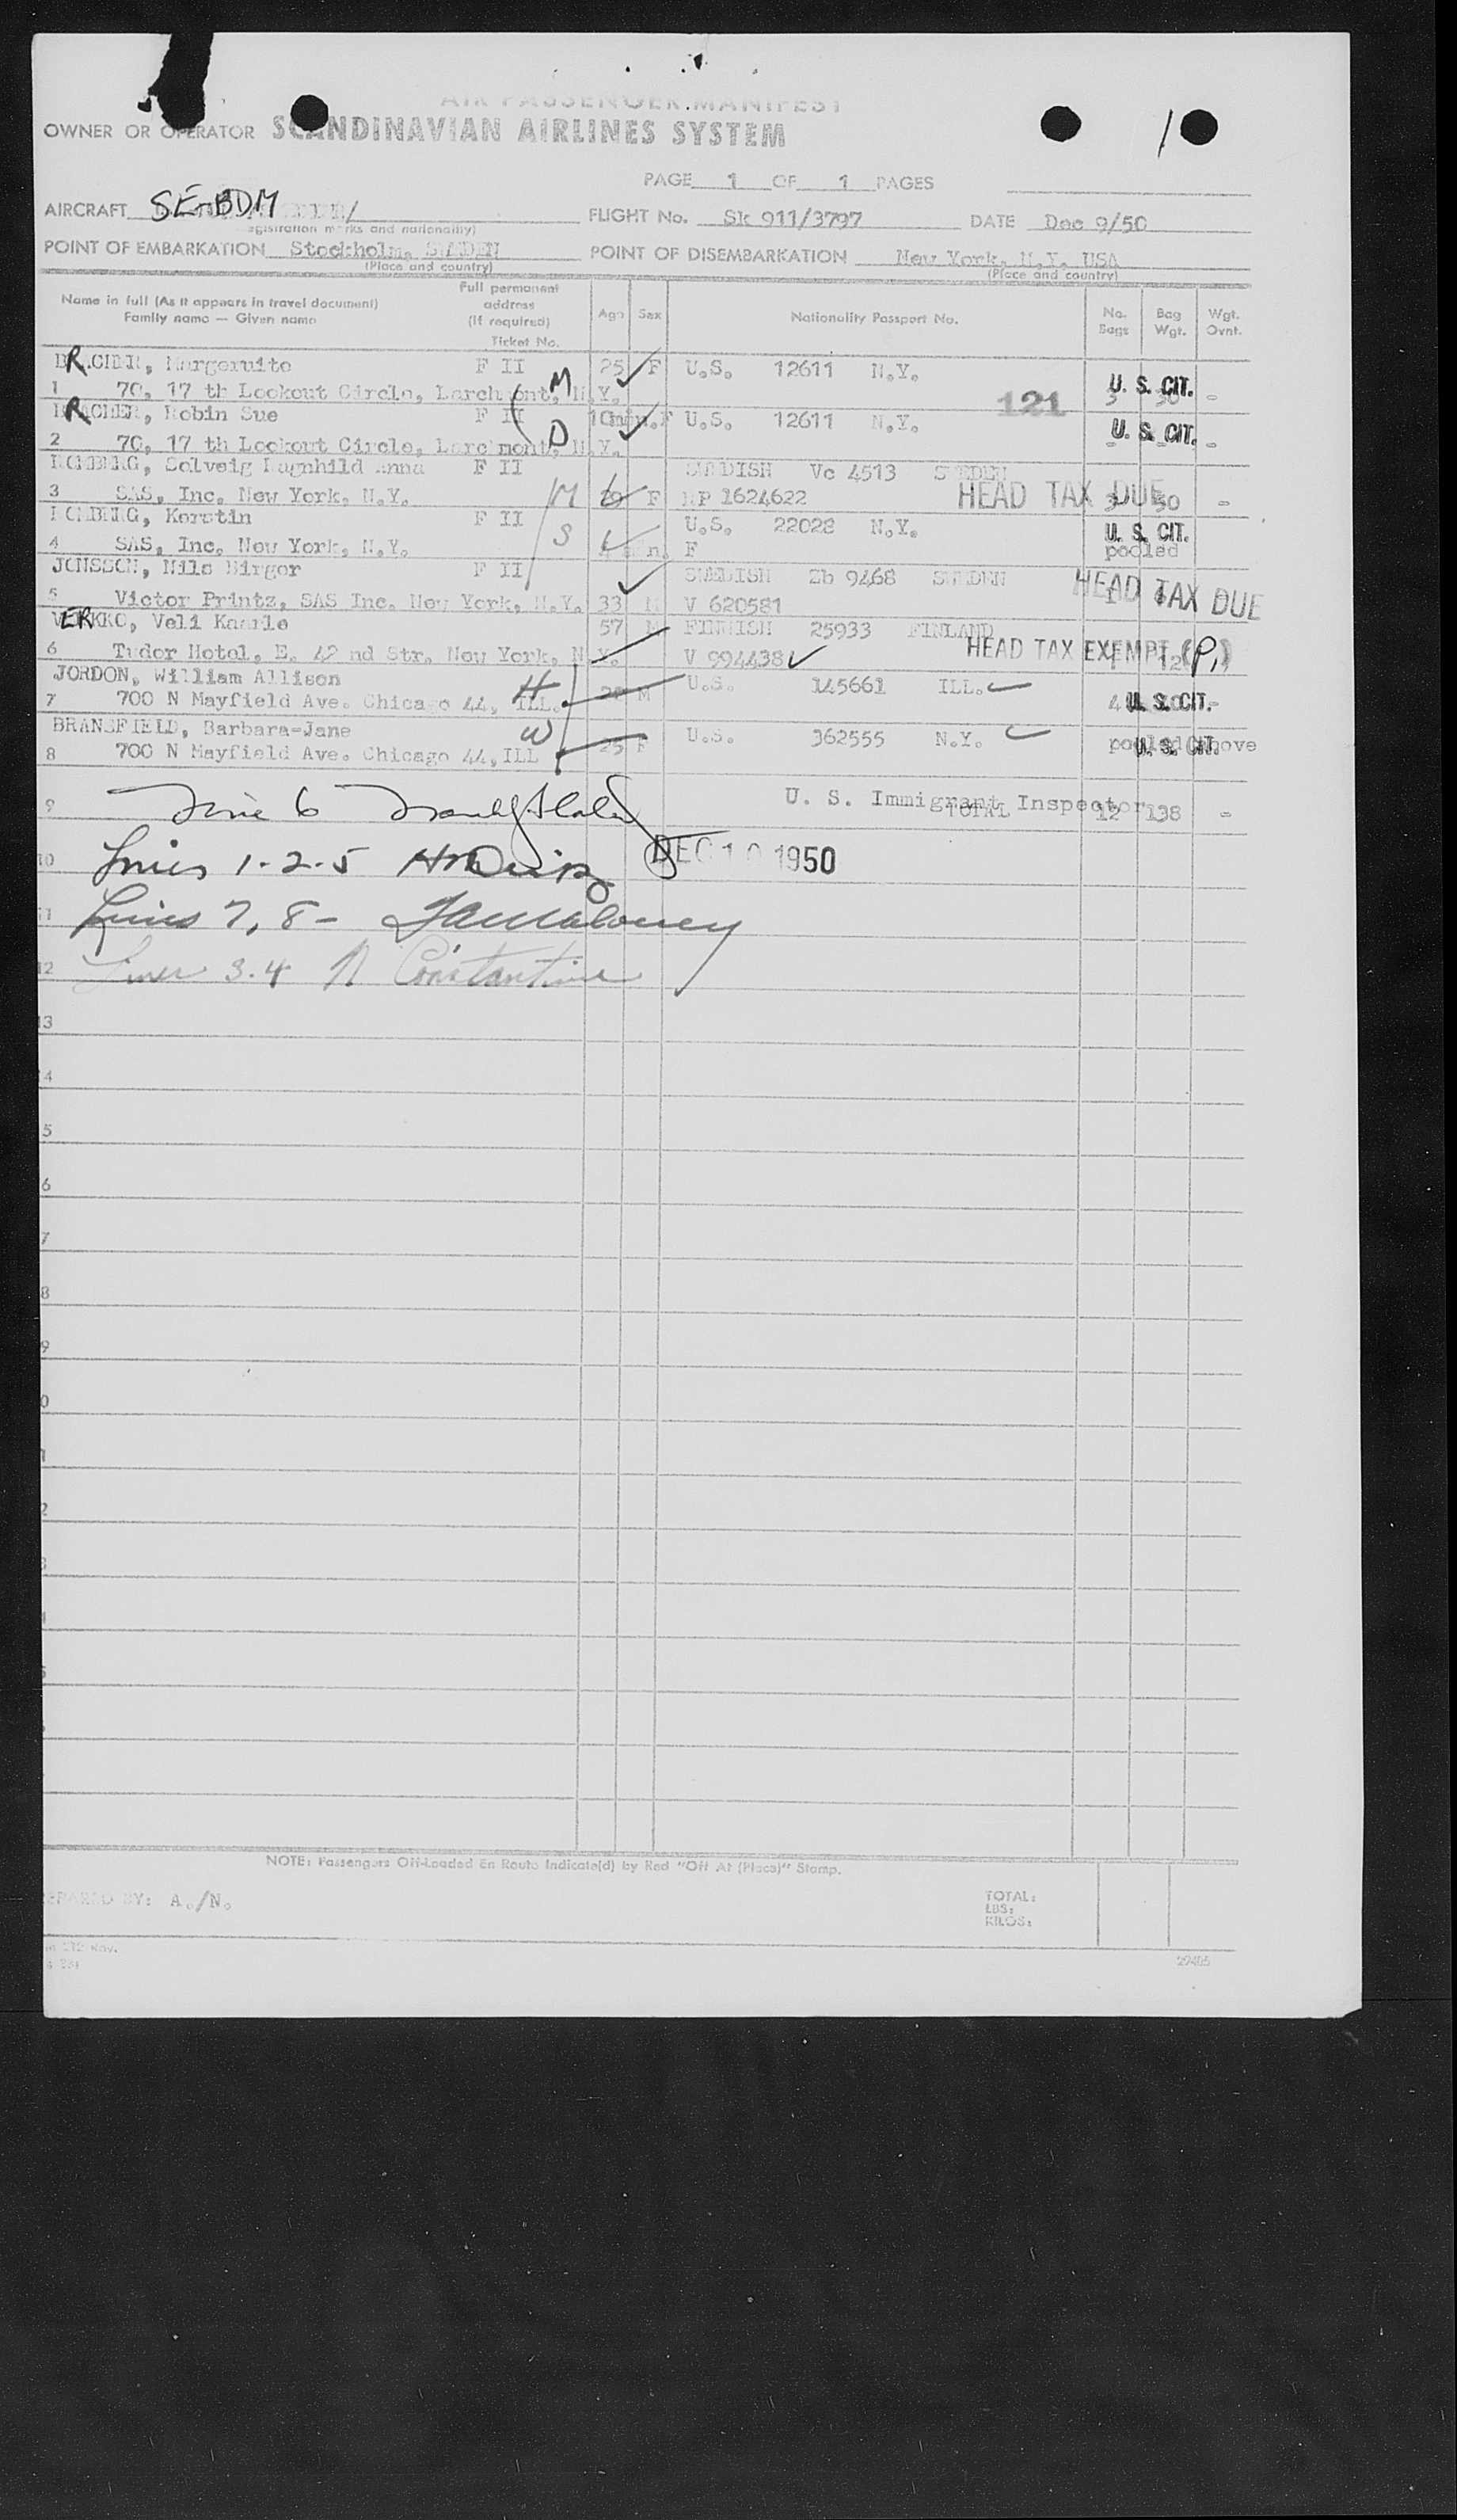 AIR PASSENGER MANIFEST
OWNER OR OPERATOR SCANDINAVIAN AIRLINES SYSTEM
1
PAGE 1 OF 1 PAGES
AIRCRAFT SE-BDM FLIGHT No. Sk 911/3797 DATE Dec 9/50
(Registration marks and nationality)
POINT OF EMBARKATION Stockholm, SWEDEN POINT OF DISEMBARKATION New York, N.Y. USA
(Place and country) (Place and country)
Name in full (As it appears in travel document) Family name — Given name
Full permanent address (If required) Ticket No.
Age Sex Nationality Passport No. No. Bags Bag Wgt. Wgt. Ovnt.
BRACHER, Margeruite F II 25 F U.S. 12611 N.Y. U. S. CIT.
1 70, 17 th Lookout Circle, Larchmont, N.Y. M 121
BRACHER, Robin Sue F II 10 F U.S. 12611 N.Y. U. S. CIT. -
2 70, 17 th Lookout Circle, Larchmont, N.Y. D
Solveig Ragnhild Anna F II SWEDISH Vc 4513 SWEDEN
3 SAS, Inc. New York, N.Y. M F RP 1624622 HEAD TAX DUE 3 30 -
Kerstin F II U.S. 22028 N.Y. U. S. CIT.
4 SAS, Inc, New York, N.Y. S F pooled
JONSSON, Nils Birger F II SWEDISH 2b 9468 SWEDEN HEAD TAX DUE
5 Victor Printz, SAS Inc. New York, N.Y. 33 M V 620581
VERKKO, Veli Kaarle 57 M FINNISH 25933 FINLAND
6 Tudor Hotel, E. 42 nd Str. New York, N.Y. V 994438 HEAD TAX EXEMPT (P.)
JORDON, William Allison U.S. 145661 ILL.
7 700 N Mayfield Ave. Chicago 44, ILL. H M 4 U. S. CIT. -
BRANSFIELD, Barbara-Jane U.S. 362555 N.Y.
8 700 N Mayfield Ave. Chicago 44, ILL W 25 F pooled above U. S. CIT.
9 Line 6 U. S. Immigrant Inspector TOTAL 12 138 -
10 Lines 1-2-5 DEC 10 1950
11 Lines 7, 8-
12 Lines 3.4 N Constantine
13
14
5
6
7
8
9
0
1
2
NOTE: Passengers Off-Loaded En Route Indicate(d) by Red "Off At (Place)" Stamp.
PREPARED BY: A./N.
TOTAL:
LBS:
KILOS: